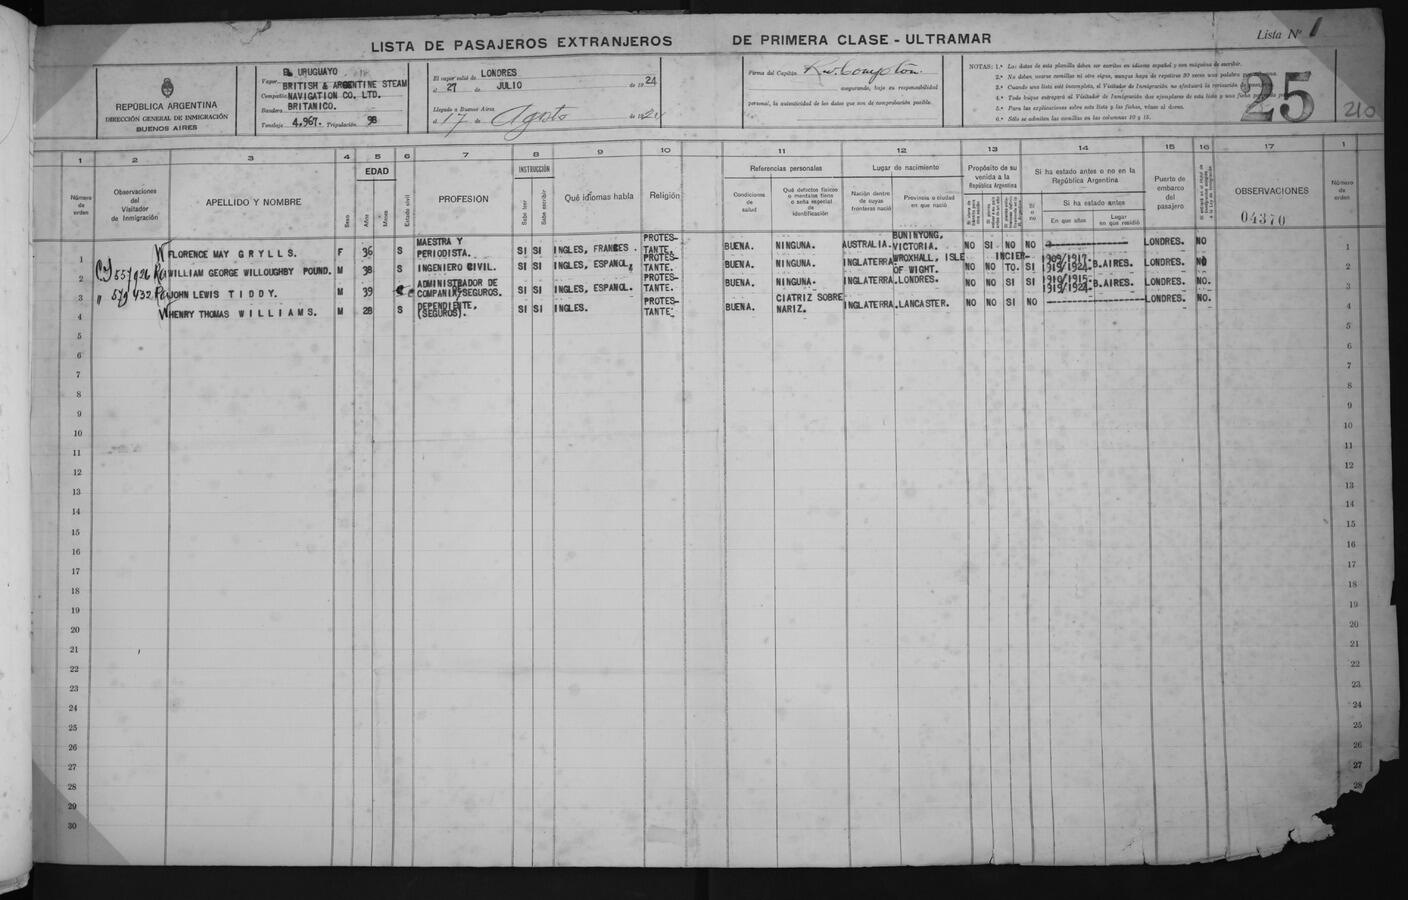 LISTA DE PASAJEROS EXTRANJEROS DE PRIMERA CLASE - ULTRAMAR
Lista Nº 1
REPÚBLICA ARGENTINA
DIRECCIÓN GENERAL DE INMIGRACIÓN
BUENOS AIRES
Vapor EL URUGUAYO
BRITISH & ARGENTINE STEAM
Compañía NAVIGATION CO. LTD.
Bandera BRITANICO.
Tonelaje 4.967. Tripulación 98
El vapor salió de LONDRES
a 27 de JULIO de 1924
Llegado a Buenos Aires
a 17 de Agosto de 1924
Firma del Capitán
asegurando, bajo su responsabilidad
personal, la autenticidad de los datos que son de comprobación posible.
NOTAS: 1.ª Los datos de esta planilla deben ser escritos en idioma español y con máquina de escribir.
25
210
1 2 3 4 5 6 7 8 9 10 11 12 13 14 15 16 17 1
Número de orden
Observaciones del Visitador de Inmigración
APELLIDO Y NOMBRE
Sexo
EDAD
Años
Meses
Estado civil
PROFESION
INSTRUCCIÓN
Sabe leer
Sabe escribir
Qué idiomas habla
Religión
Referencias personales
Condiciones de salud
Qué defectos físicos o mentales tiene o seña especial de identificación
Lugar de nacimiento
Nación dentro de cuyas fronteras nació
Provincia o ciudad en que nació
Propósito de su venida a la República Argentina
Si ha estado antes o no en la República Argentina
Sí o no
Si ha estado antes
En que años
Lugar en que residió
Puerto de embarco del pasajero
OBSERVACIONES
04370
Número de orden
1 FLORENCE MAY GRYLLS. F 36 S MAESTRA Y PERIODISTA. SI SI INGLES, FRANCES. PROTES-TANTE. BUENA. NINGUNA. AUSTRALIA. BUNINYONG, VICTORIA. NO SI NO NO LONDRES. NO 1
2 557926 WILLIAM GEORGE WILLOUGHBY POUND. M 38 S INGENIERO CIVIL. SI SI INGLES, ESPANOL, PROTES-TANTE. BUENA. NINGUNA. INGLATERRA WROXHALL, ISLE OF WIGHT. NO NO INCIER-TO. SI 1909/1917. 1919/1924. B.AIRES. LONDRES. NO 2
3 " 579432 JOHN LEWIS TIDDY. M 39 C ADMINISTRADOR DE COMPANIA SEGUROS. SI SI INGLES, ESPANOL. PROTES-TANTE. BUENA. NINGUNA. INGLATERRA. LONDRES. NO NO SI SI 1910/1915. 1919/1924. B.AIRES. LONDRES. NO. 3
4 HENRY THOMAS WILLIAMS. M 28 S DEPENDIENTE, (SEGUROS). SI SI INGLES. PROTES-TANTE. BUENA. CIATRIZ SOBRE NARIZ. INGLATERRA. LANCASTER. NO NO SI NO LONDRES. NO. 4
5 5
6 6
7 7
8 8
9 9
10 10
11 11
12 12
13 13
14 14
15 15
16 16
17 17
18 18
19 19
20 20
21 21
22 22
23 23
24 24
25 25
26 26
27 27
28 28
29
30